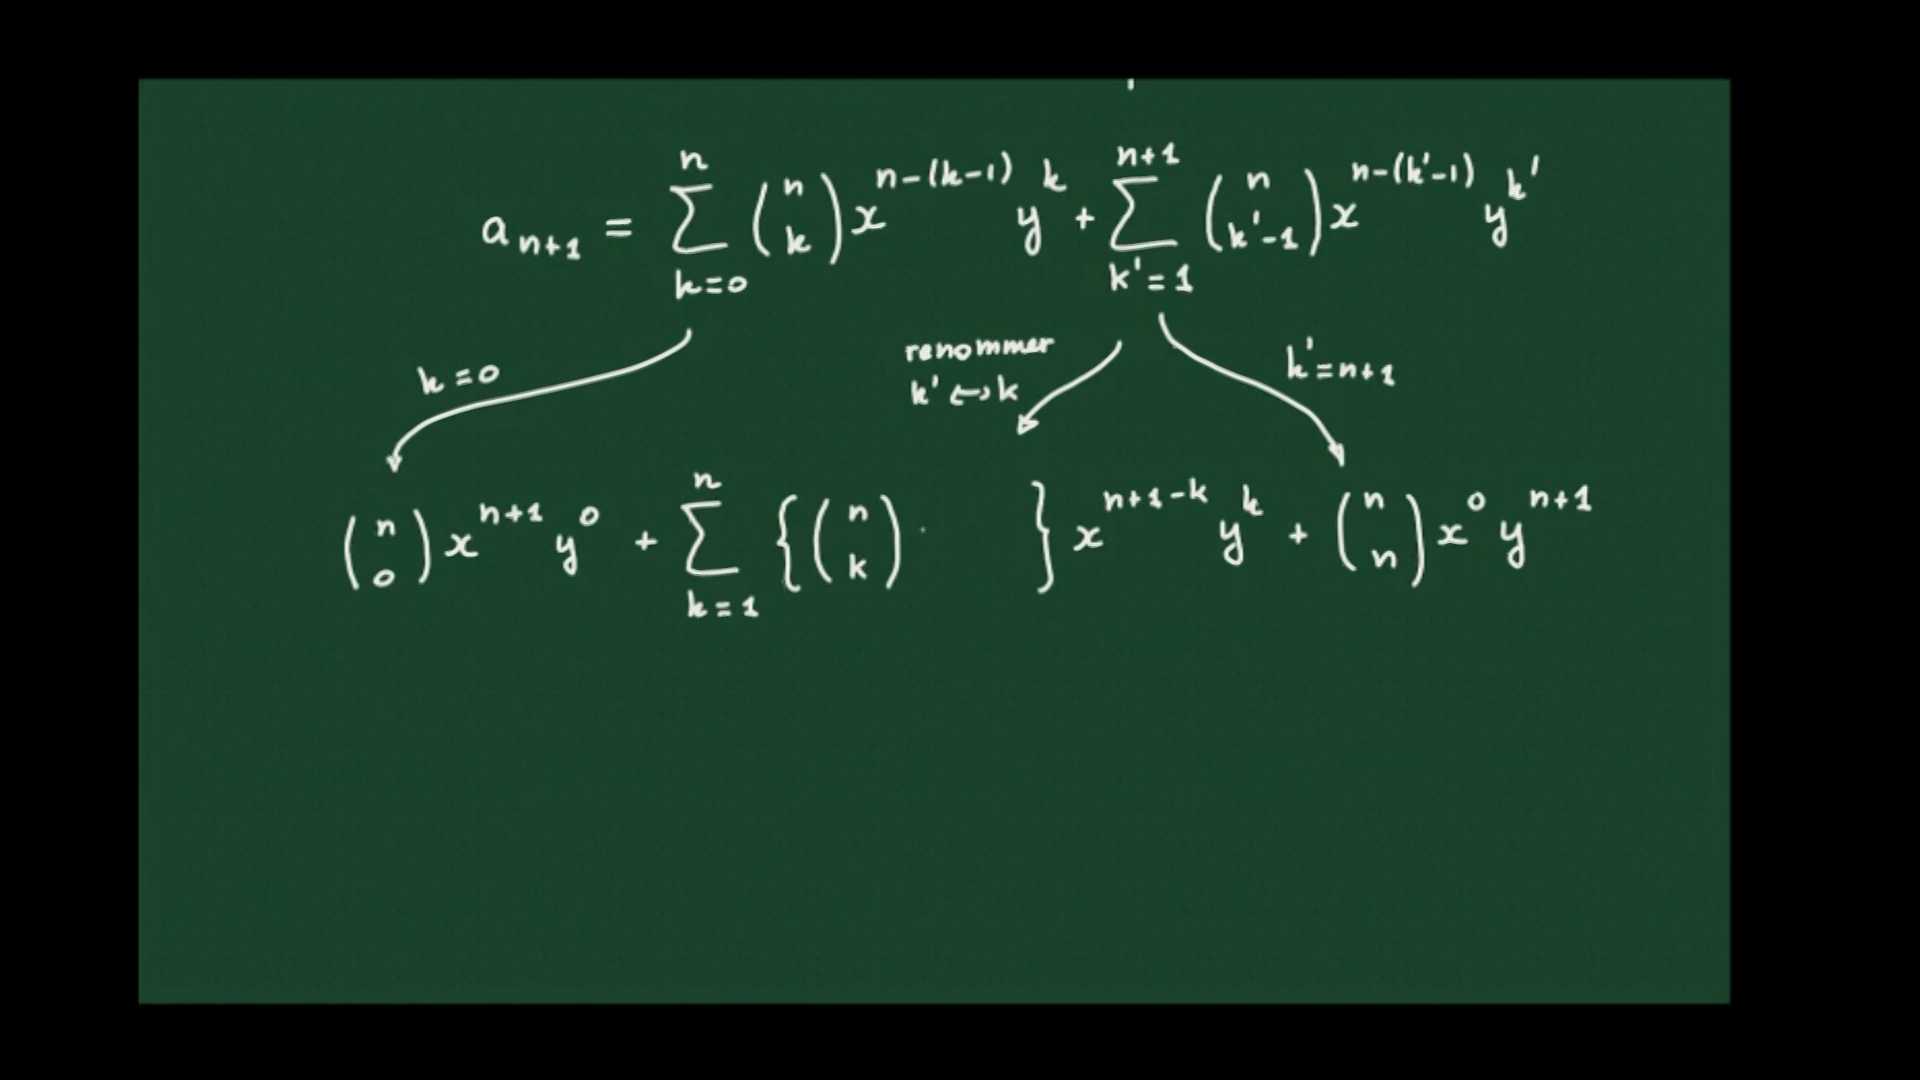 a_{n+1} = \sum_{k=0}^{n} \binom{n}{k} x^{n-(k-1)} y^{k} + \sum_{k'=1}^{n+1} \binom{n}{k'-1} x^{n-(k'-1)} y^{k'}
k=0
renommer
k' ↔ k
k'=n+1
\binom{n}{0} x^{n+1} y^{0} + \sum_{k=1}^{n} \{ \binom{n}{k} \} x^{n+1-k} y^{k} + \binom{n}{n} x^{0} y^{n+1}